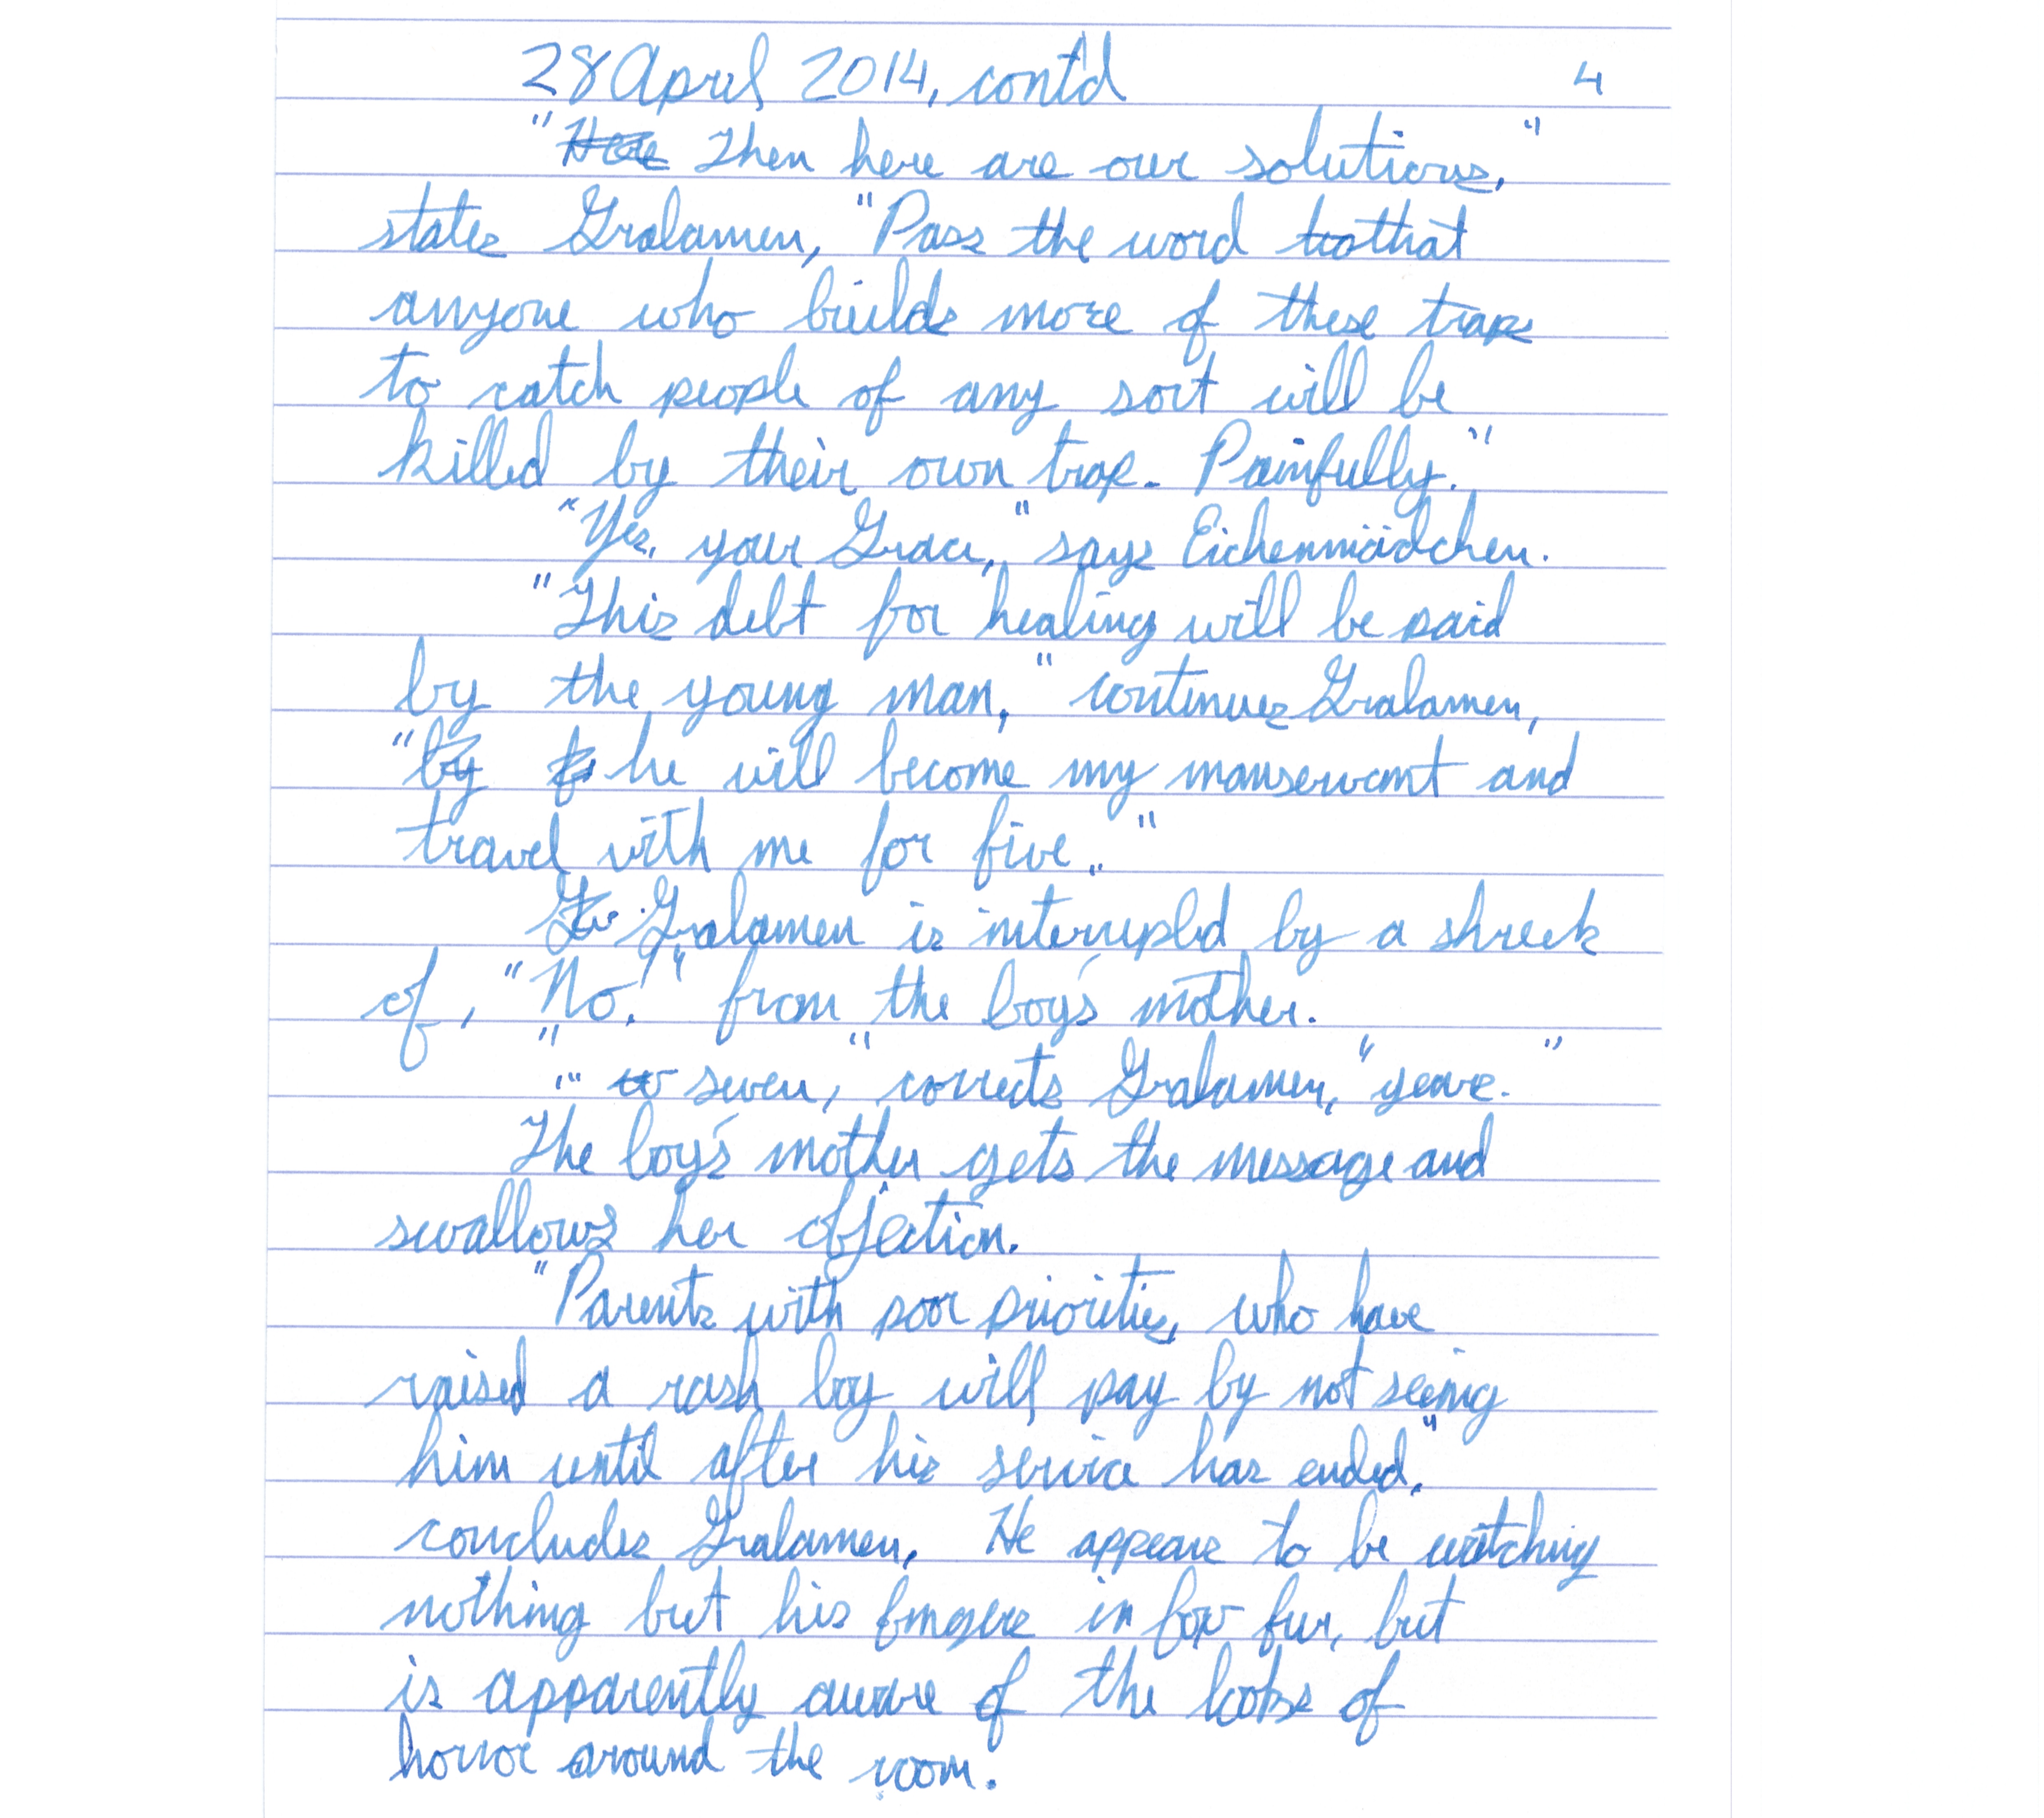 28 April 2014, cont'd 4
"Here Then here are our solutions,"
states Gralamen, "Pass the word to that
anyone who builds more of these traps
to catch people of any sort will be
killed by their own trap. Painfully."
"Yes, your Grace," says Eichenmädchen.
"This debt for healing will be paid
by the young man," continues Gralamen,
"by he will become my manservant and
travel with me for five.."
Gralamen is interrupted by a shreek
of, "No!" from the boy's mother.
".." seven," corrects Gralamen, "years."
The boy's mother gets the message and
swallows her objection.
"Parents with poor priorities, who have
raised a rash boy will pay by not seeing
him until after his service has ended,"
concludes Gralamen. He appears to be watching
nothing but his fingers in fox fur, but
is apparently aware of the looks of
horror around the room.